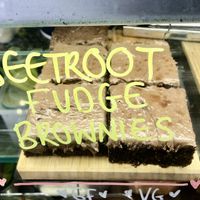 BEETROOT
FUDGE
BROWNIES
GF VG